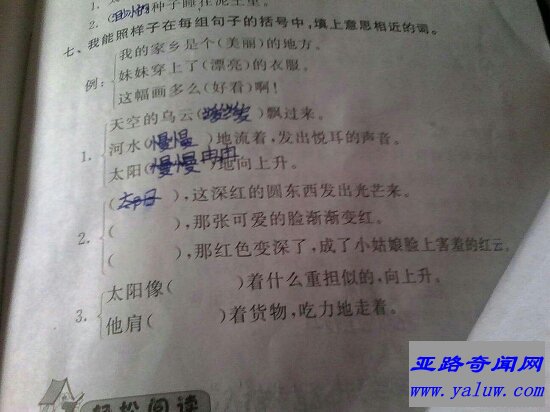 2. ( )种子睡在泥土里。
七、我能照样子在每组句子的括号中,填上意思相近的词。
例:
我的家乡是个(美丽)的地方。
妹妹穿上了(漂亮)的衣服。
这幅画多么(好看)啊!
1.
天空的乌云( )飘过来。
河水(慢慢)地流着,发出悦耳的声音。
太阳(慢慢冉冉)地向上升。
2.
(太阳),这深红的圆东西发出光芒来。
( ),那张可爱的脸渐渐变红。
( ),那红色变深了,成了小姑娘脸上害羞的红云。
3.
太阳像( )着什么重担似的,向上升。
他肩( )着货物,吃力地走着。
轻松阅读
亚路奇闻网
www.yaluw.com